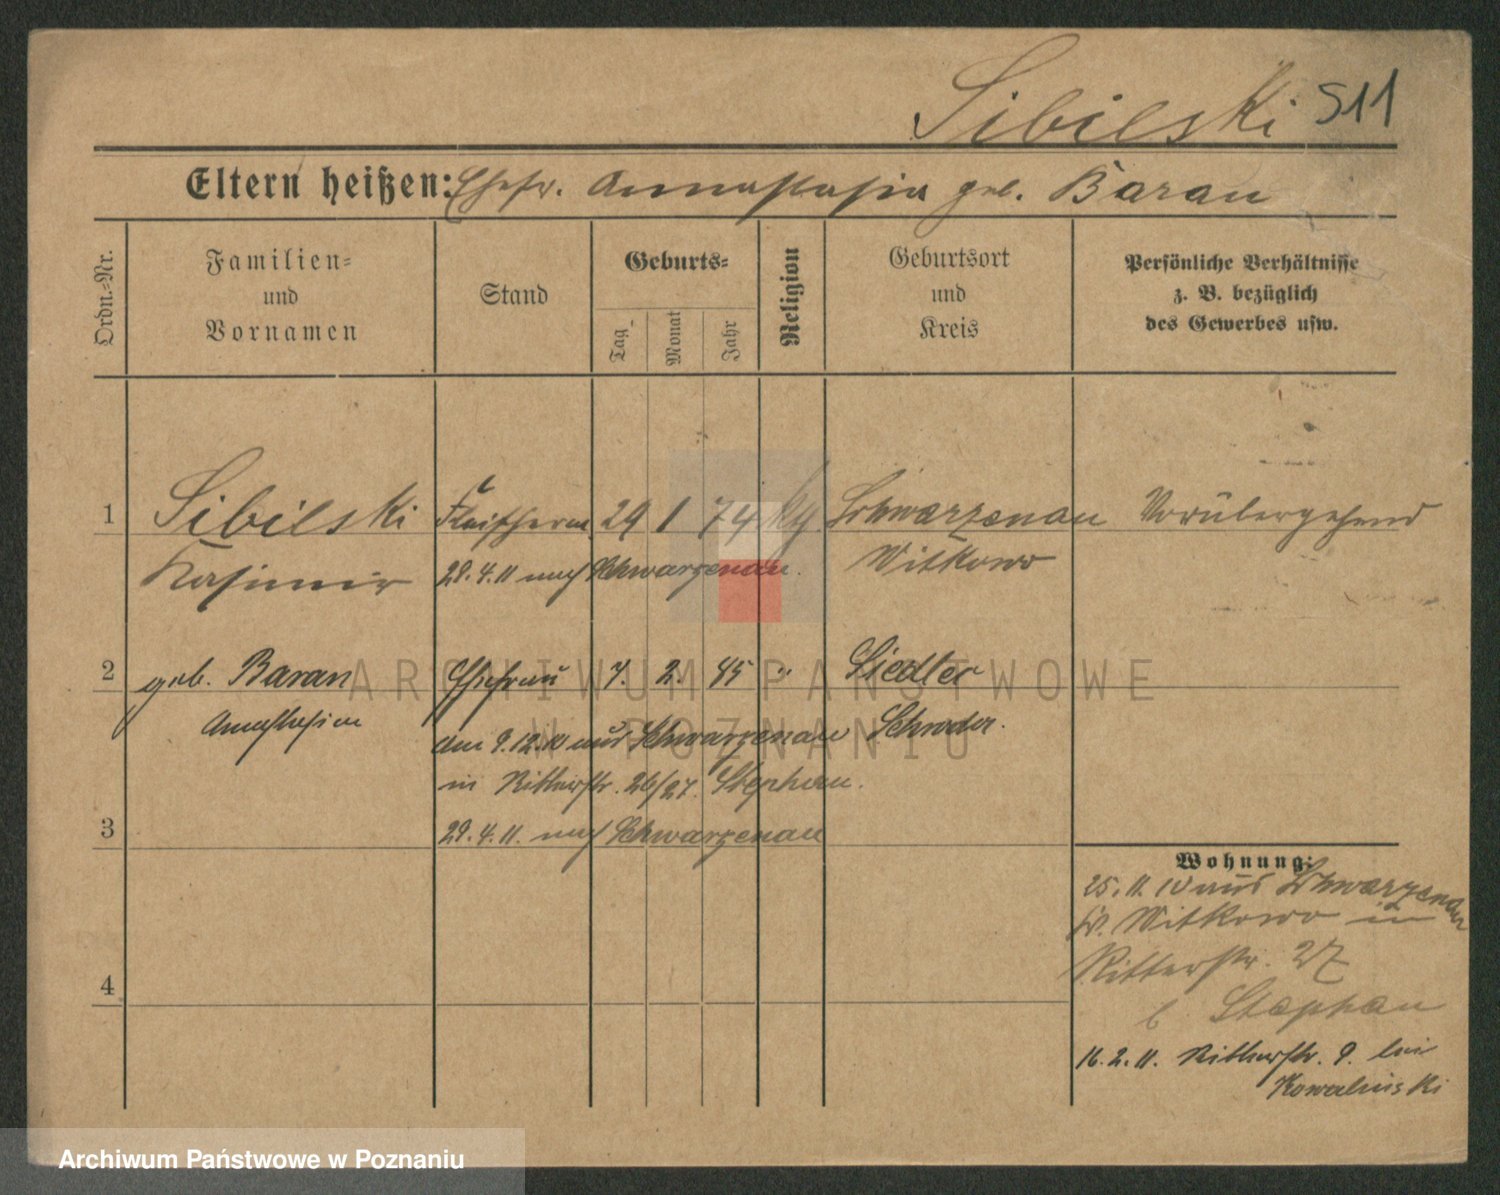 Sibilski 511
Eltern heißen: Ehefr. Annastasia geb. Baran
Ordn.-Nr.
Familien-
und
Vornamen
Stand
Geburts-
Tag
Monat
Jahr
Religion
Geburtsort
und
Kreis
Persönliche Verhältnisse
z. B. bezüglich
des Gewerbes usw.
1 Sibilski 29 1 74 Schwarzenau Vorübergehend
Kasimir 29.4.11 nach Schwarzenau. Witkowo
2 geb. Baran Ehefrau 7. 2. " Siedlec
Annastasia Schroda.
am 9.12.10 aus Schwarzenau
in Ritterstr. 26/27. Stephan.
3 29.4.11. nach Schwarzenau
4
Wohnung:
25.11.10 aus Schwarzenau
Kr. Witkowo in
Ritterstr. 27
b Stephan
16.2.11. Ritterstr. 9. bei
Kowalinski
ARCHIWUM PAŃSTWOWE
W POZNANIU
Archiwum Państwowe w Poznaniu